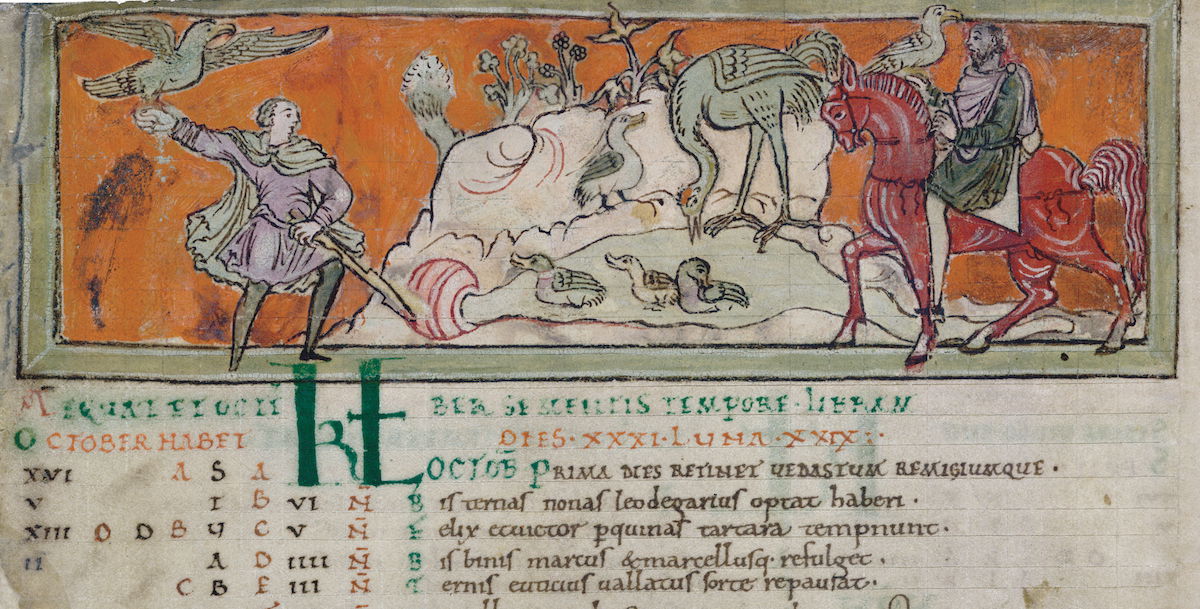 AEQUAT ET OCTIMBER SEMENTIS TEMPORE · LIBRAM
OCTOBER HABET DIES · XXXI · LUNA · XXIX :·
XVI A S A KL OCTOB PRIMA DIES RETINET UEDASTUM REMIGIUMQUE ·
V T B VI N Bis ternas nonas leodegarius optat haberi ·
XIII O D B Y C V N Felix et uictor pquinas tartara tempnunt ·
II A D IIII N Bis binis marcus & marcellusq· refulget ·
C B E III N Ternis euticius uallatus sorte repausat ·